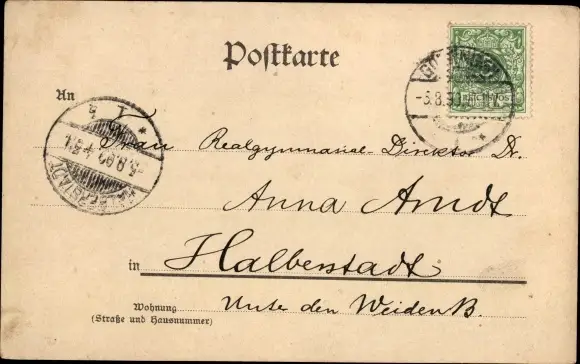 Postkarte
An
Frau Realgymnasial-Direktor Dr.
Anna Arndt
in Halberstadt
Wohnung
(Straße und Hausnummer)
Unter den Weiden